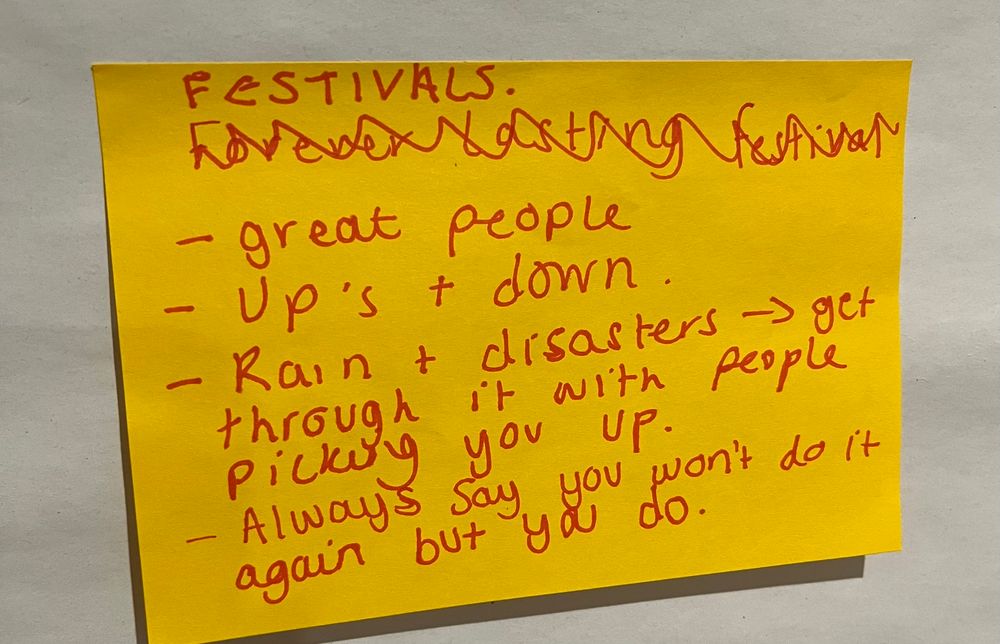 FESTIVALS.
Forever Lasting festival
- great people
- Up's + down.
- Rain + disasters → get
through it with people
picking you up.
- Always say you won't do it
again but you do.